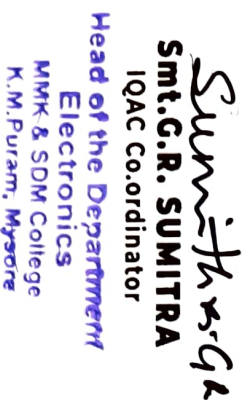 Sumithra.G.R
Smt.G.R. SUMITRA
IQAC Co.ordinator
Head of the Department
Electronics
MMK & SDM College
K.M.Puram, Mysore